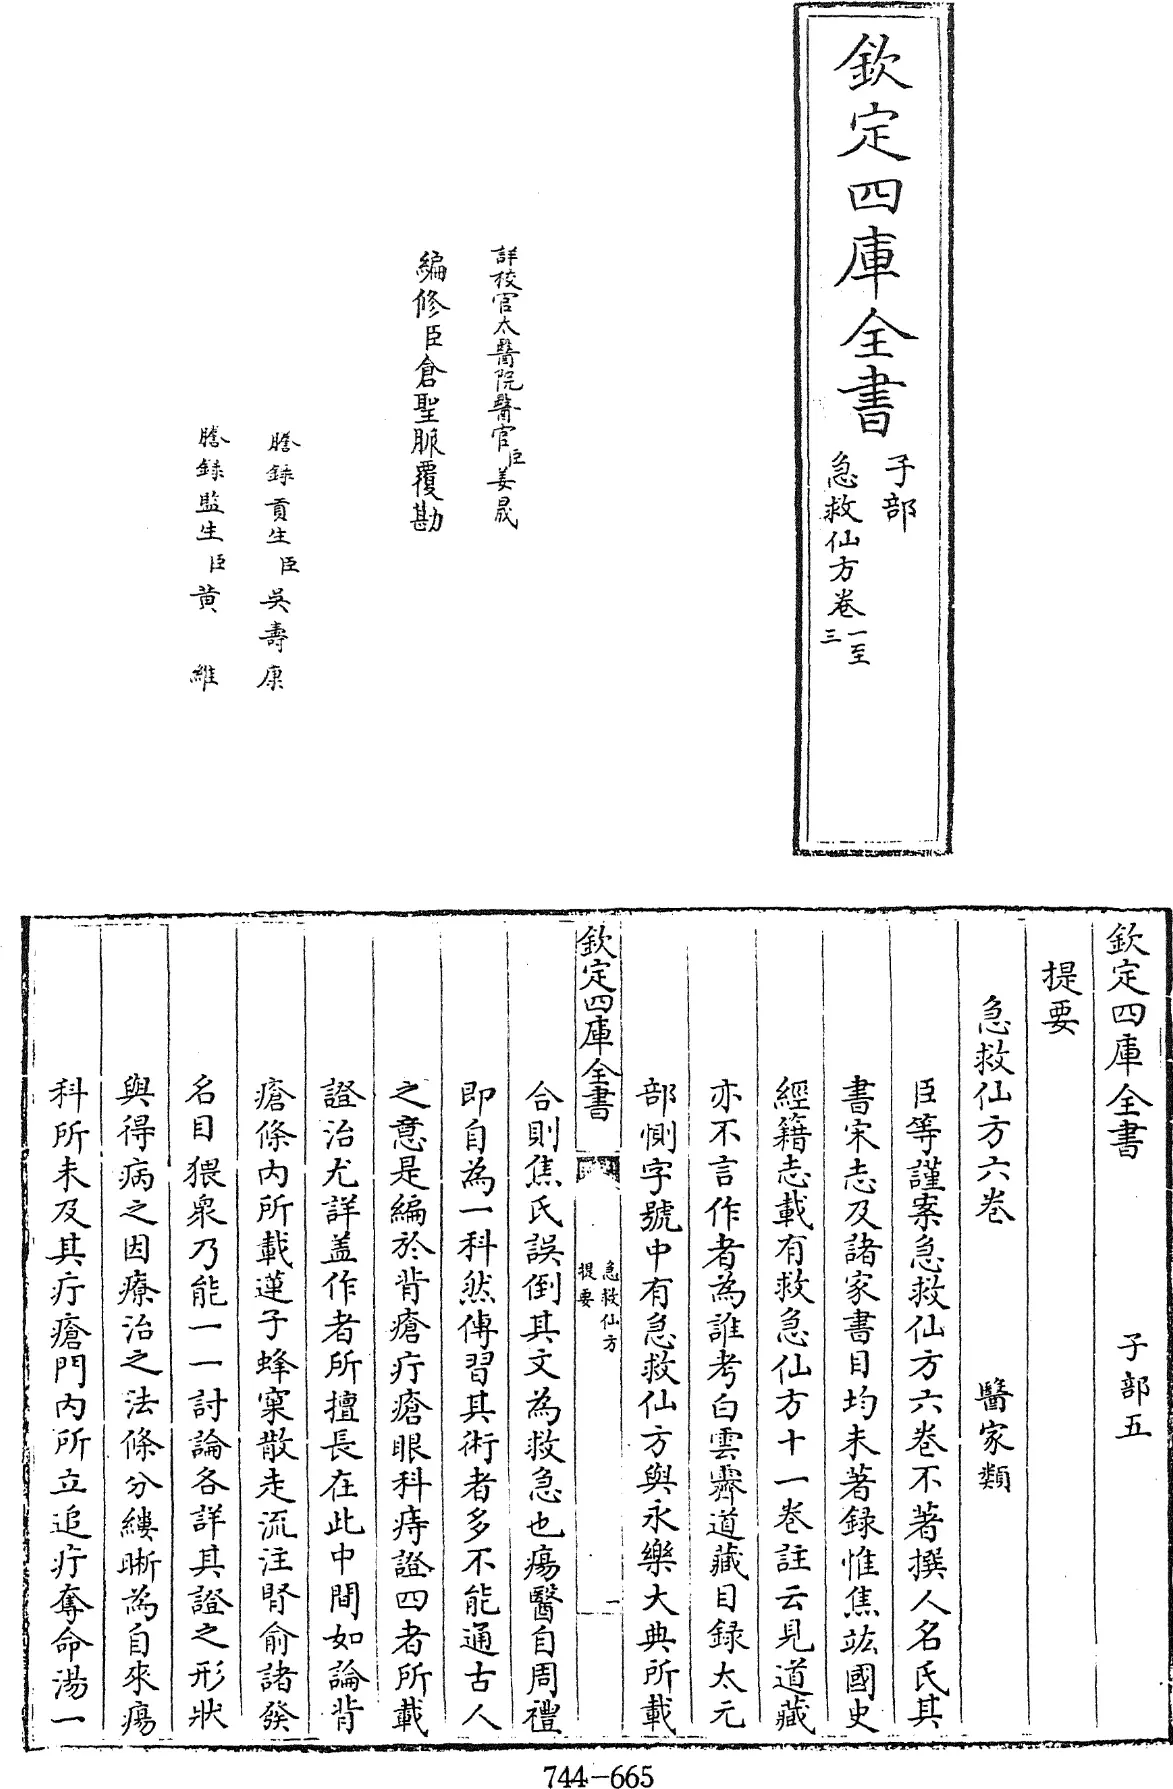 欽定四庫全書
子部
急救仙方卷一至三
詳校官太醫院醫官臣姜晟
編修臣倉聖脈覆勘
謄錄貢生臣吳壽康
謄錄監生臣黃維
欽定四庫全書 子部五
提要
急救仙方六卷 醫家類
臣等謹案急救仙方六卷不著撰人名氏其
書宋志及諸家書目均未著録惟焦竑國史
經籍志載有救急仙方十一卷註云見道藏
亦不言作者為誰考白雲霽道藏目録太元
部惻字號中有急救仙方與永樂大典所載
欽定四庫全書
急救仙方
提要
一
合則焦氏誤倒其文為救急也瘍醫自周禮
即自為一科然傳習其術者多不能通古人
之意是編於背瘡疔瘡眼科痔證四者所載
證治尤詳盖作者所擅長在此中間如論背
瘡條内所載蓮子蜂窠散走流注腎俞諸發
名目猥衆乃能一一討論各詳其證之形狀
與得病之因療治之法條分縷晰為自來瘍
科所未及其疔瘡門内所立追疔奪命湯一
744-665